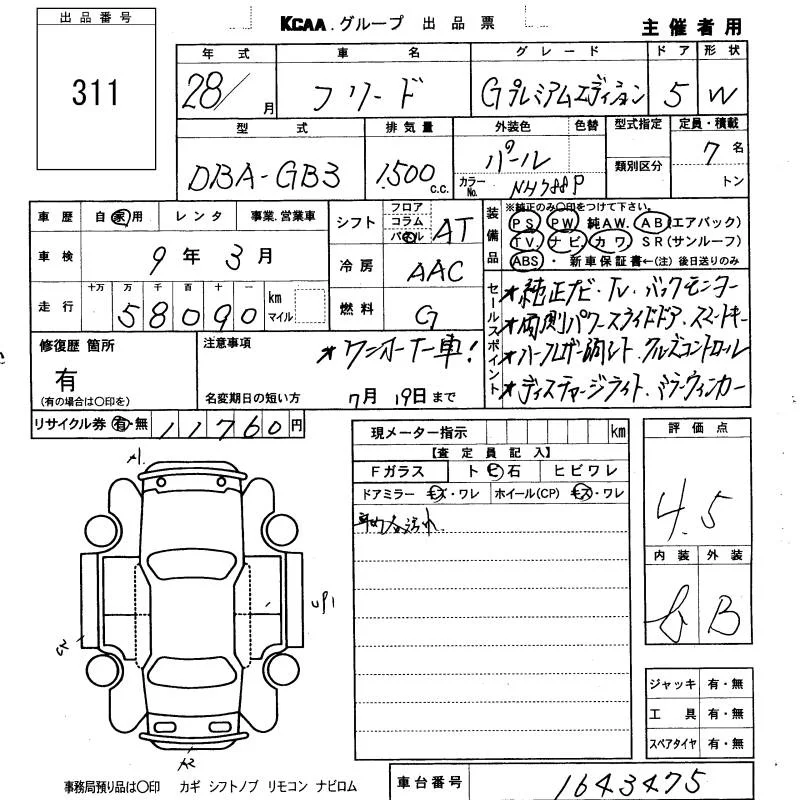 出品番号
311
KCAA.グループ 出品票
主催者用
年式 車名 グレード ドア 形状
28/ 月 フリード Gプレミアムエディション 5 W
型式 排気量 外装色 色替 型式指定 定員・積載
DBA-GB3 1,500 c.c. パール 類別区分 7 名
カラーNo. NH788P トン
車歴 自家用 レンタ 事業.営業車
車検 9年3月
走行 十万 万 千 百 十 一
58090 km マイル
シフト フロア コラム パネル AT
冷房 AAC
燃料 G
装備品
※純正のみ〇印をつけて下さい。
PS PW 純AW. AB(エアバック)
TV. ナビ. カワ SR(サンルーフ)
ABS・ 新車保証書←(注) 後日送りのみ
セールスポイント
★純正ナビ・TV・バックモニター
★両側パワースライドドア・スマートキー
★ハーフレザー調シート クルーズコントロール
★ディスチャージライト・ミラーウィンカー
修復歴 箇所
有
(有の場合は〇印を)
注意事項
★ワンオーナー車!
名変期日の短い方 7月 19日まで
リサイクル券 有・無 11760円
現メーター指示 km
【査定員記入】
Fガラス トビ石 ヒビワレ
ドアミラー キズ・ワレ ホイール(CP) キズ・ワレ
評価点
4.5
内装 外装
B
A1
UP1
A2
ジャッキ 有・無
工具 有・無
スペアタイヤ 有・無
事務局預り品は〇印 カギ シフトノブ リモコン ナビロム
車台番号 1643475